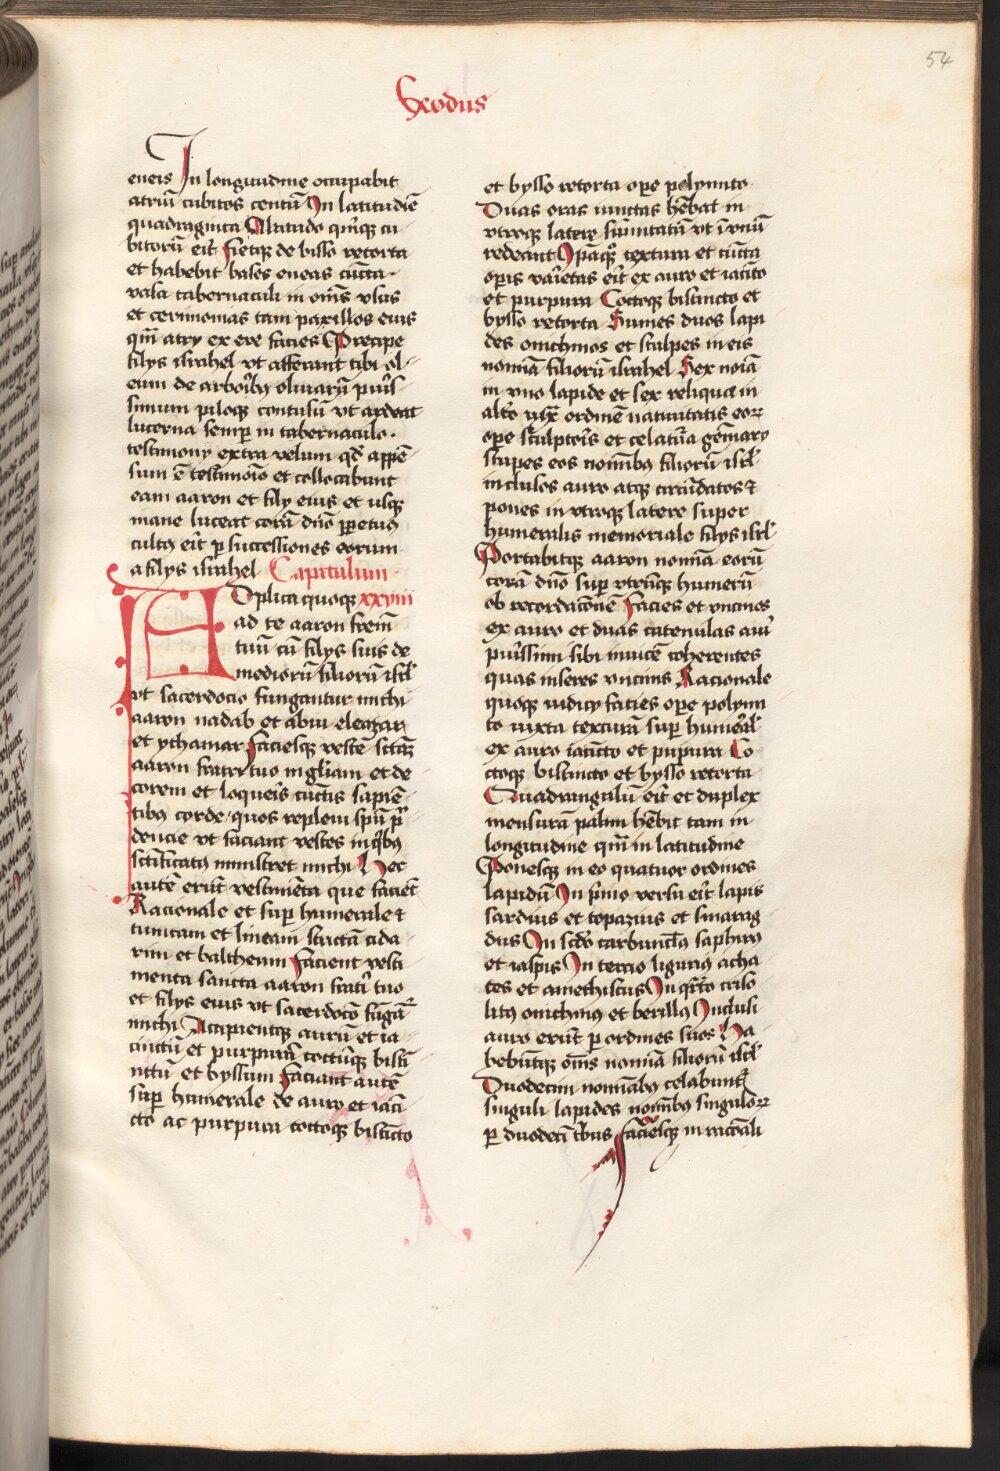 54
Exodus
eneis In longitudine occupabit
atriū cubitos centū In latitudīe
quadraginta Altitudo qͥnqꝫ cu
bitorū erit fietqꝫ de bisso retorta
et habebit bases eneas cūcta
vasa tabernaculi in oīnes vsus
et cerimonias tam paxillos eius
qm̄ atrij ex ere facies Precipe
filijs israhel vt afferant tibi ol
eum de arboribꝰ oliuarū puris
simum piloqꝫ contusū vt ardeat
lucerna semꝑ in tabernaculo
testimonij extra velum qd̄ appē
sum ē testimoīo et collocabunt
eam aaron et filij eius et usqꝫ
mane luceat corā dn̄o ꝑpetuꝰ
cultꝰ erit ꝑ successiones eorum
a filijs israhel Capitulum
Aplica quoqꝫ xxviii
ad te aaron frem̄
tuū cū filijs suis de
mediorū filiorū isrl̄
vt sacerdocio fungantur michi
aaron nadab et abiu eleazar
et ythamar faciesqꝫ vestē sctāꝫ
aaron fratri tuo in gl̄iam et de
corem et loqueris cūctis sapiē
tibꝰ corde quos repleui spū pͬ
dencie vt faciant vestes in qͥbꝰ
sctificatꝰ ministret michi Hec
autē erūt vestimēta que faciēt
Racionale et suꝑ humerale ⁊
tunicam et lineam strictā cida
rim et baltheum facient vesti
menta sancta aaron fratri tuo
et filijs eius vt sacerdocō fūgāͬ
michi Accipientqꝫ aurū et ia
cinctū et purpurā coctūqꝫ bisti
nctū et byssum faciant autē
suꝑ humerale de auro et iaci
cto ac purpura coctoqꝫ bistīcto
et bysso retorta oꝑe polymito
Duas oras iunctas hēbat in
vtroqꝫ latere sūmitatū vt ī vnū
redeant Ipāqꝫ textura et cūcta
oꝑis varietas erit ex auro et iacīcto
et purpura Coctoqꝫ bistincto et
bysso retorta Sumes duos lapi
des onichinos et sculpes in eis
nomīa filiorū israhel Sex noīa
in vno lapide et sex reliqua in
altō iuxͣ ordinē natiuitatis eoꝝ
oꝑe sculptoris et celatura gēmarꝫ
sculpes eos nomībꝰ filiorū isrl̄
inclusos auro atqꝫ circūdatos ⁊
pones in vtroqꝫ latere super
humeralis memoriale filijs isrl̄
Portabitqꝫ aaron nomīa eorū
corā dn̄o suꝑ vtrūqꝫ humerū
ob recordacōnē facies et vncinos
ex auro et duas catenulas auri
purissimi sibi inuicē coherentes
quas inseres vncinis Racionale
quoqꝫ iudicij facies oꝑe polymi
to iuxta texturā suꝑ humeral̄
ex auro iacīcto et purpura Co
ctoqꝫ bistincto et bysso retorta
Quadrangulū erit et duplex
mensurā palmi hēbit tam in
longitudine qm̄ in latitudine
Ponesqꝫ in eo quatuor ordines
lapidū In primo versu erit lapis
sardius et topazius et smarag
dus In scd̄o carbunculꝰ saphirꝰ
et iaspis In tercio ligurius acha
tes et amethistus In qͣrto criso
litꝰ onichinꝰ et berillꝰ Inclusi
auro erūt ꝑ ordines suos Ha
bebūtqꝫ oīnes nomīa filiorū isrl̄
Duodecim nomībꝰ celabunt͛
singuli lapides nomībꝰ singuloꝝ
ꝑ duodecī tͥbus faciesqꝫ in racōali